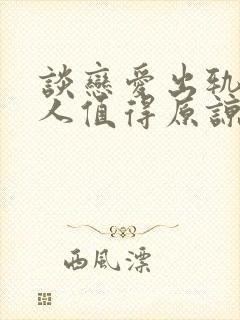 談戀愛出軌
人值得原諒
西風漂